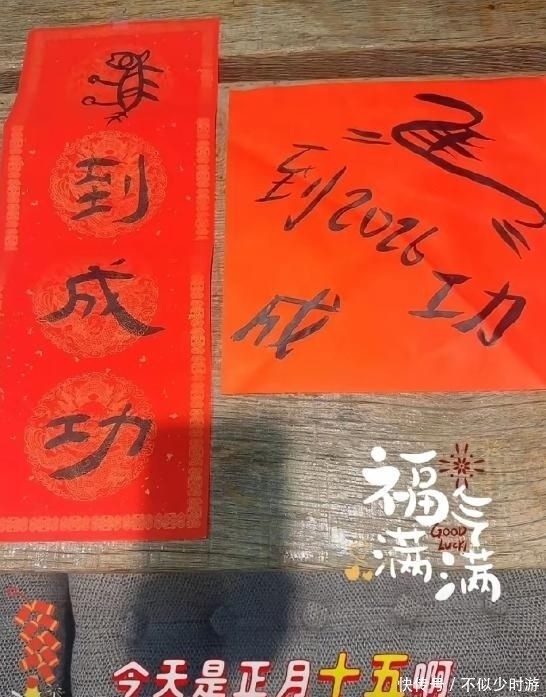 到
成
功
到2026
成功
福气
满满
GOOD
LUCK
今天是正月十五啊
快传号 / 不似少时游